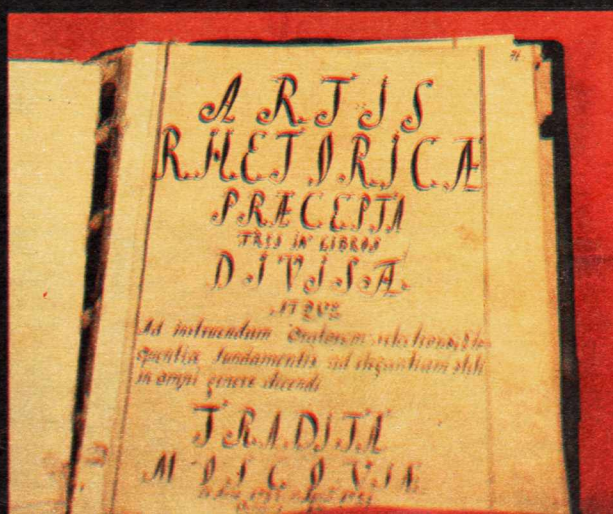 ARTIS
RHETORICÆ
PRÆCEPTA
TRES IN LIBROS
DIVISA
ATQUE
Ad instruendum Oratorem
fundamentis ad elegantiam styli
in omni genere dicendi
TRADITA
MOSCOVIÆ